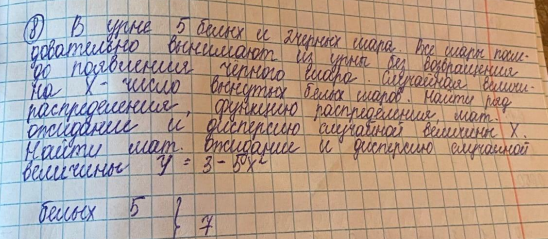 ⑧ В урне 5 белых и 2 черных шара. Все шары после-
довательно вынимают из урны без возвращения
до появления черного шара. Случайная величи-
на X - число вынутых белых шаров. Найти ряд
распределения, функцию распределения, мат.
ожидание и дисперсию случайной величины X.
Найти мат. ожидание и дисперсию случайной
величины Y = 3 - 5X
белых 5 }
7